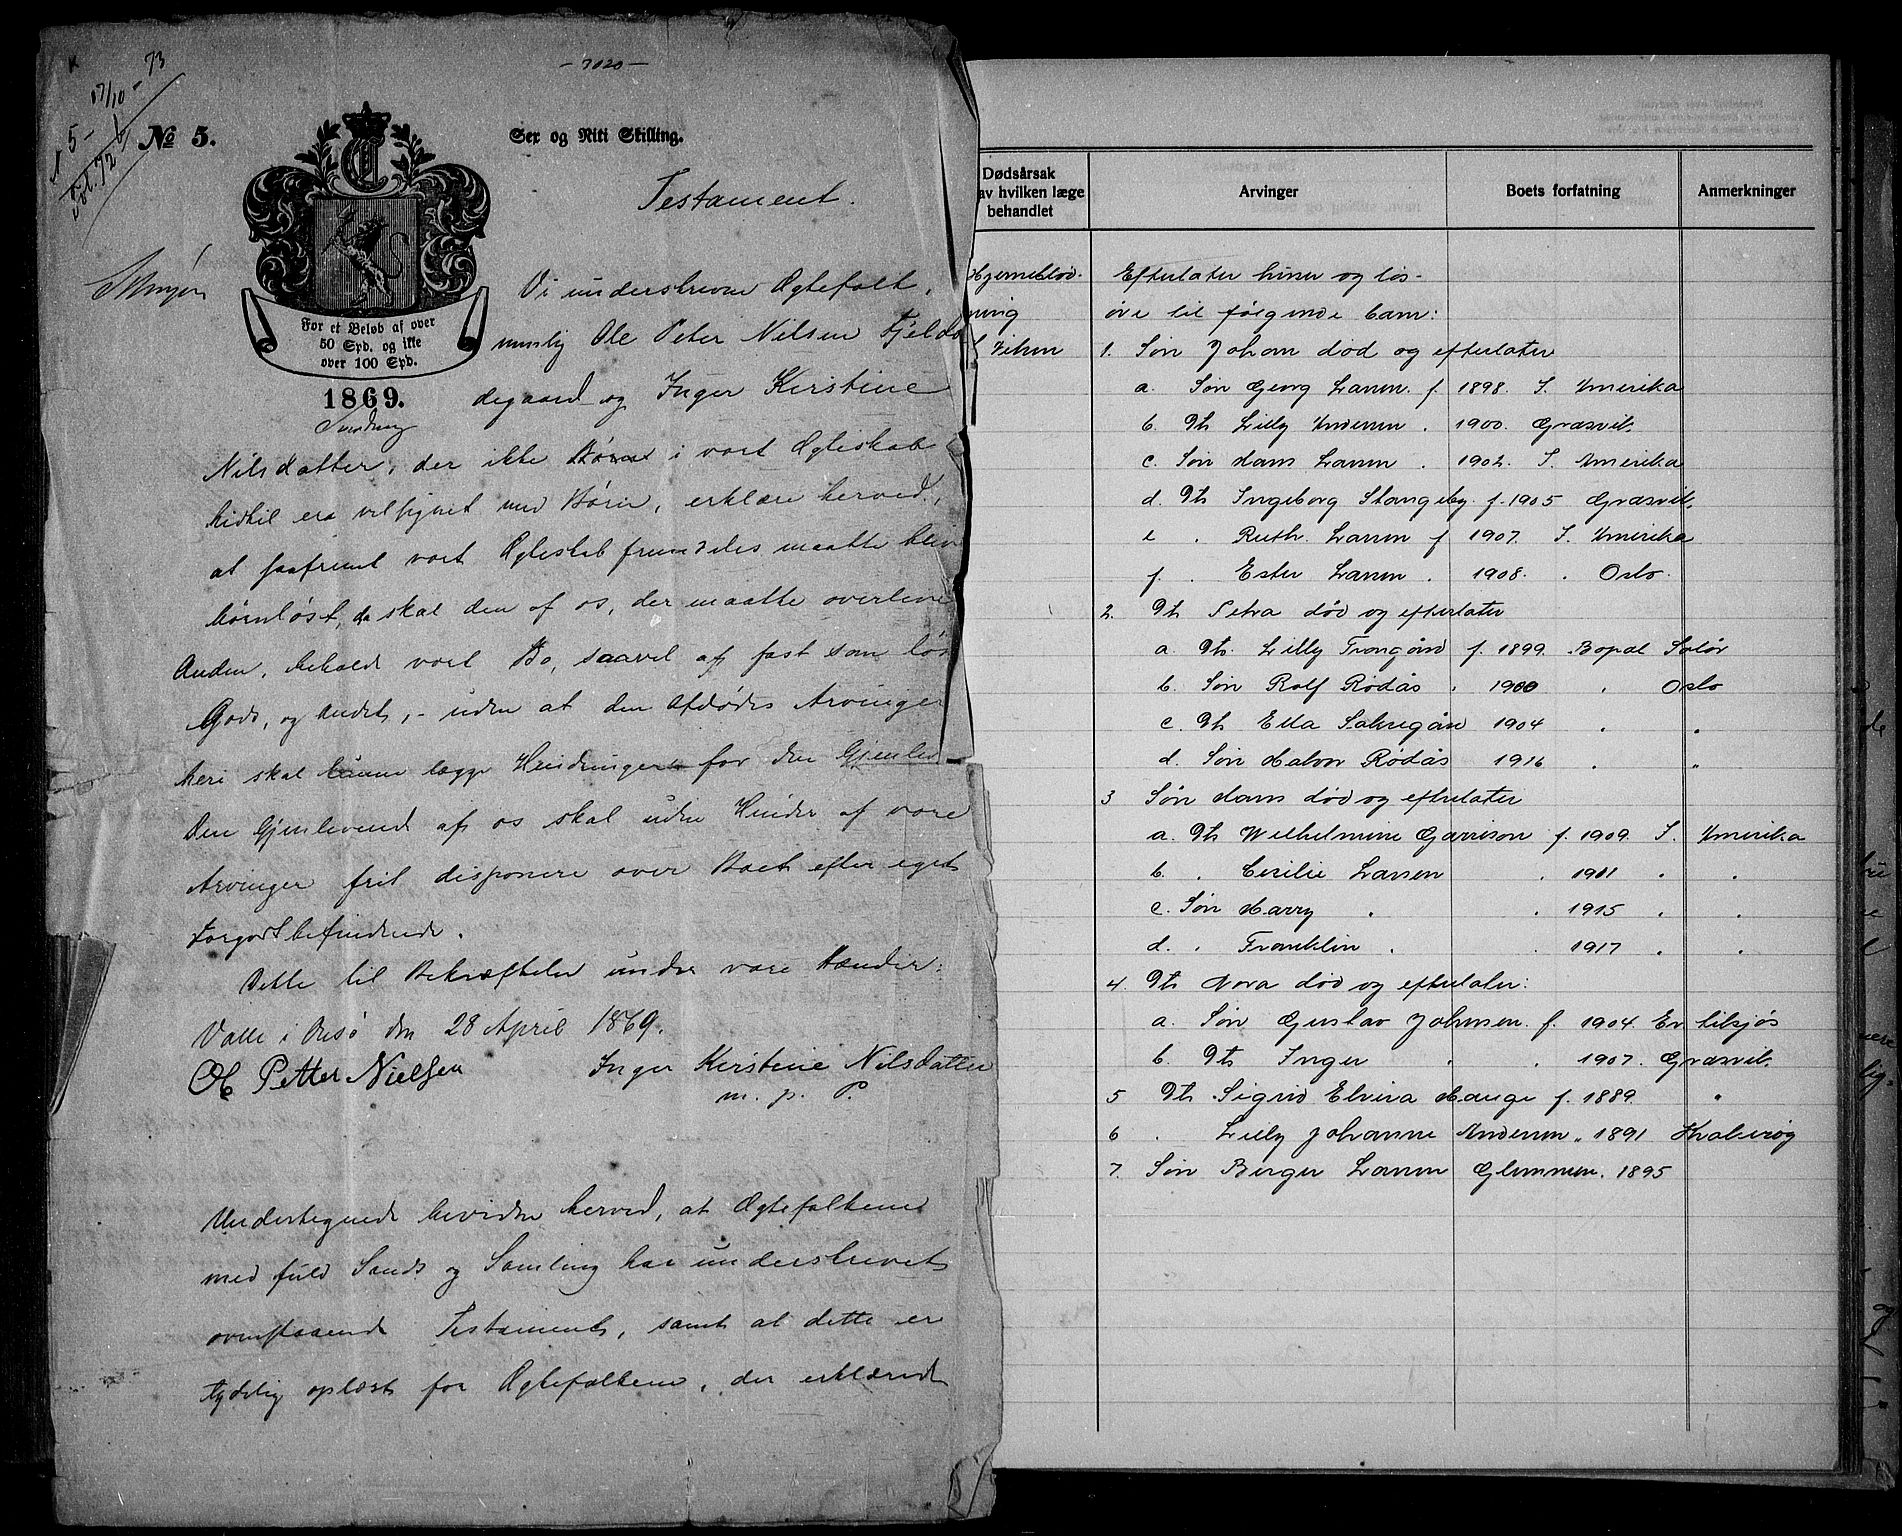 - 7020 -
17/10 - 73
No 5.
Sex og Niti Skilling.
For et Beløb af over
50 Spd. og ikke
over 100 Spd.
1869.
Testament.
Vi underskrevne Ægtefolk,
nemlig Ole Peter Nilsen Fjeld
degaard og Inger Kerstine
Nilsdatter, der ikke i vort Ægteskab
hidtil era velsignet med Børn, erklære herved,
at saafremt vort Ægteskab fremdeles maatte bliv
børnløst, da skal den af os, der maatte overleve
Anden, beholde vort Bo, saavel af fast som løs
Gods, og Andet, - uden at den Afdødes Arvinger
heri skal kunne lægge Hindringer for den Gjenlev
Den Gjenlevende af os skal uden Hinder af vore
Arvinger frit disponere over Boet efter eget
Forgodtbefindende.
Dette til Bekræftelse under vore Hænder.
Valle i Onsö den 28 April 1869.
Ole Petter Nielsen Inger Kerstine Nilsdatter
m. p. P.
Undertegnede bevidne herved, at Ægtefolkene
med fuld Sands og Samling har underskrevet
ovenstaaende Testament, samt at dette er
tydelig oplæst for Ægtefolkene, der erklærede
Dødsårsak
av hvilken læge
behandlet
Arvinger
Boets forfatning
Anmerkninger
Hjerneblød-
ning
Efterlater huser og løs-
øre til følgende barn:
1. Søn Johan død og efterlater
a. Søn Georg Larsen f. 1898. I. Amerika
b. Dt. Lilly Andersen . 1900. Græsvik.
c. Søn Hans Larsen . 1902. I. Amerika
d. Dt. Ingeborg Stangeby f. 1905 Græsvik.
e . Ruth Larsen f 1907. I. Amerika
f. . Ester Larsen . 1908. . Oslo.
2. Dt. Petra død og efterlater
a. Dt. Lilly Trongård f. 1899. Bopæl Solør
b. Søn Rolf Rødås . 1900 . Oslo
c. Dt. Ella 1904 . "
d. Søn Halvor Rødås 1916 . "
3 Søn Hans død og efterlater
a. Dt. Wilhelmine Garrison f. 1909. I. Amerika
b. . Cecilie Larsen . 1911 . .
c. Søn Harry . . 1915 . .
d. . Franklin . . 1917 . .
4. Dt. Nora død og efterlater:
a. Søn Gustav Johnsen f. 1904. Er tilsjøs
b. Dt. Inger . . 1907. Græsvik.
5 Dt. Sigrid Elvira Hauge f. 1889. "
6 . Lilly Johanne Andersen " 1891 Kråkerøy
7. Søn Birger Larsen Glemmen. 1895